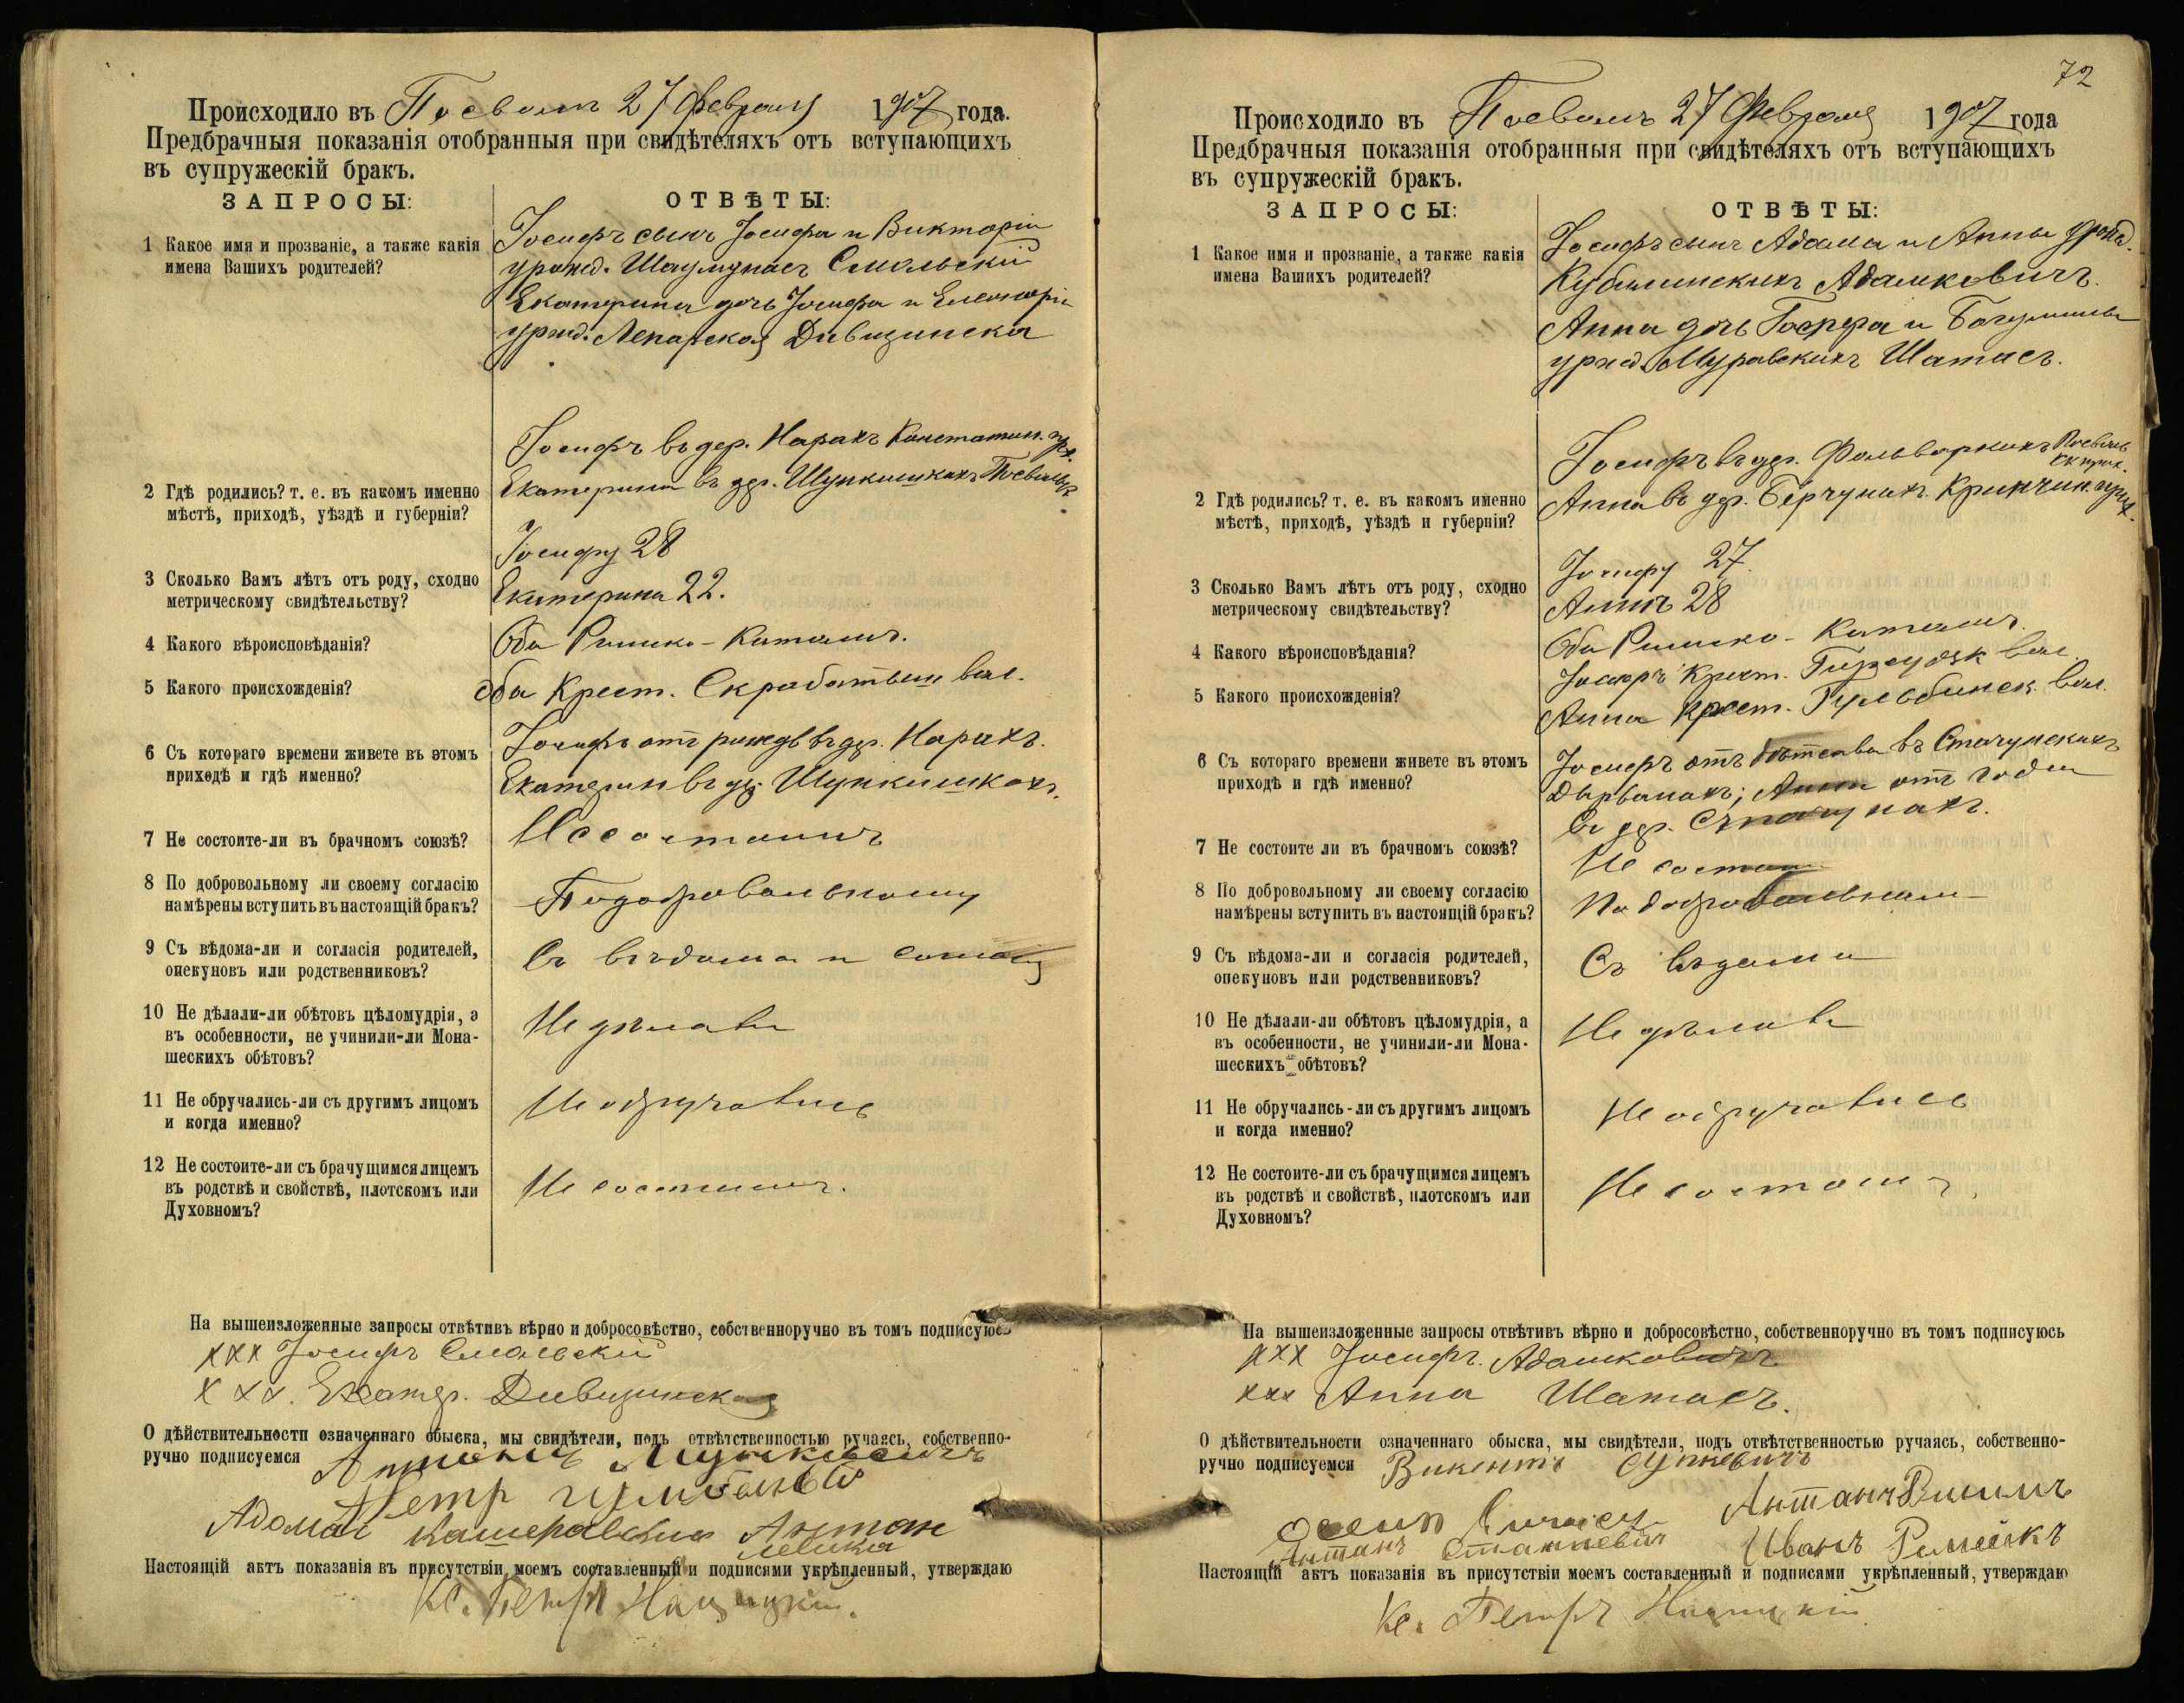 Происходило въ Посволь 27 Февраля 1907 года.
Предбрачныя показанія отобранныя при свидѣтеляхъ отъ вступающихъ
въ супружескій бракъ.
ЗАПРОСЫ:
ОТВѢТЫ:
1 Какое имя и прозваніе, а также какія
имена Вашихъ родителей?
Іосифъ сынъ Іосифа и Викторіи
урожд. Смольскій
Екатерина дочь Іосифа и Елеонорі
урожд. Лепарская Дивщинска
2 Гдѣ родились? т. е. въ какомъ именно
мѣстѣ, приходѣ, уѣздѣ и губерніи?
Іосифъ въ дер. Нарахъ Константин. прх.
Екатерина въ дер. Шункишкахъ
3 Сколько Вамъ лѣтъ отъ роду, сходно
метрическому свидѣтельству?
Іосифу 28
Екатерина 22.
4 Какого вѣроисповѣданія?
Оба Римско-Католич.
5 Какого происхожденія?
Оба Крест. вол.
6 Съ котораго времени живете въ этомъ
приходѣ и гдѣ именно?
Іосифъ отъ рожд въ др. Нарахъ.
Екатерин въ др. Шункишкахъ.
7 Не состоите-ли въ брачномъ союзѣ?
Не состоимъ
8 По добровольному ли своему согласію
намѣрены вступить въ настоящій бракъ?
По добровольному
9 Съ вѣдома-ли и согласія родителей,
опекуновъ или родственниковъ?
Съ вѣдома и
10 Не дѣлали-ли обѣтовъ цѣломудрія, а
въ особенности, не учинили-ли Мона-
шескихъ обѣтовъ?
Не дѣлали
11 Не обручались-ли съ другимъ лицомъ
и когда именно?
Не обручались
12 Не состоите-ли съ брачущимся лицемъ
въ родствѣ и свойствѣ, плотскомъ или
Духовномъ?
Не состоимъ.
На вышеизложенные запросы отвѣтивъ вѣрно и добросовѣстно, собственноручно въ томъ подписуюсь
ххх Іосифъ Смольскій
ххх. Екатер. Дивщинская
О дѣйствительности означеннаго обыска, мы свидѣтели, подъ отвѣтственностью ручаясь, собственно-
ручно подписуемся
Петр
Адомас Антон
Настоящій актъ показанія въ присутствіи моемъ составленный и подписями укрѣпленный, утверждаю
Кс. Петръ
72
Происходило въ Посволь 27 Февраля 1907 года
Предбрачныя показанія отобранныя при свидѣтеляхъ отъ вступающихъ
въ супружескій бракъ.
ЗАПРОСЫ:
ОТВѢТЫ:
1 Какое имя и прозваніе, а также какія
имена Вашихъ родителей?
Іосифъ сынъ Адама и Анны урожд.
Адамковичъ.
Анна дочь и Богумилы
уржд. Муравскихъ Шатасъ.
2 Гдѣ родились? т. е. въ какомъ именно
мѣстѣ, приходѣ, уѣздѣ и губерніи?
Іосифъ въ др. Фольваркахъ
Анна въ др. Кринчин. прих.
3 Сколько Вамъ лѣтъ отъ роду, сходно
метрическому свидѣтельству?
Іосифу 27.
Аннѣ 28
4 Какого вѣроисповѣданія?
Оба Римско-Католич.
5 Какого происхожденія?
Іосифъ Крест. вол.
Анна Крест. вол.
6 Съ котораго времени живете въ этомъ
приходѣ и гдѣ именно?
Іосифъ отъ дѣтства въ
Анна отъ года
въ др.
7 Не состоите ли въ брачномъ союзѣ?
Не состоим
8 По добровольному ли своему согласію
намѣрены вступить въ настоящій бракъ?
По добровольном
9 Съ вѣдома-ли и согласія родителей,
опекуновъ или родственниковъ?
Съ вѣдома
10 Не дѣлали-ли обѣтовъ цѣломудрія, а
въ особенности, не учинили-ли Мона-
шескихъ обѣтовъ?
Не дѣлали
11 Не обручались-ли съ другимъ лицомъ
и когда именно?
Не обручались
12 Не состоите-ли съ брачущимся лицемъ
въ родствѣ и свойствѣ, плотскомъ или
Духовномъ?
Не состоимъ
На вышеизложенные запросы отвѣтивъ вѣрно и добросовѣстно, собственноручно въ томъ подписуюсь
ххх Іосифъ. Адамковичъ
ххх Анна Шатасъ.
О дѣйствительности означеннаго обыска, мы свидѣтели, подъ отвѣтственностью ручаясь, собственно-
ручно подписуемся Викентъ
Осепъ Антанъ
Антанъ Станкевичъ Иванъ
Настоящій актъ показанія въ присутствіи моемъ составленный и подписями укрѣпленный, утверждаю
Кс. Петръ